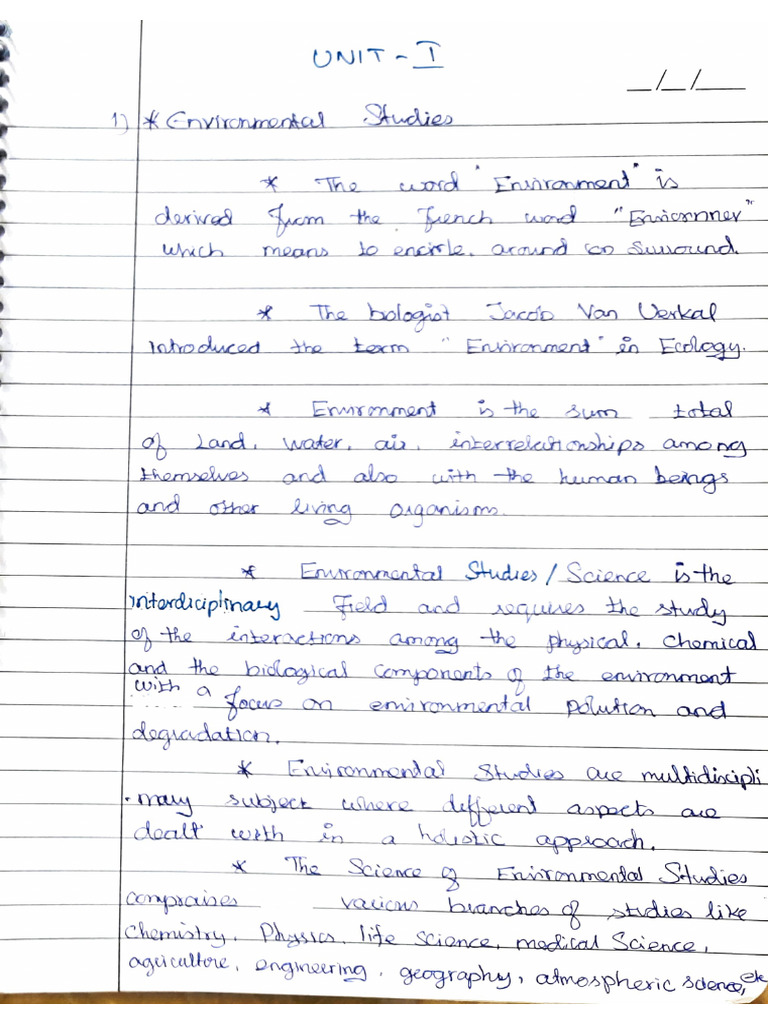 UNIT - I
_/_/__
1) * Environmental Studies
* The word "Environment" is
derived from the French word "Environner"
which means to encircle, around or surround.
* The biologist Jacob Van Uerkal
introduced the term "Environment" in Ecology.
* Environment is the sum total
of Land, water, air, interrelationships among
themselves and also with the human beings
and other living organisms.
* Environmental Studies / Science is the
interdiciplinary field and requires the study
of the interactions among the physical, chemical
and the biological components of the environment
with a focus on environmental polution and
degradation.
* Environmental Studies are multidiscipli
-nary subject where different aspects are
dealt with in a holistic approach.
* The Science of Environmental Studies
compraises various branches of studies like
chemistry, Physics, life science, medical Science,
agriculture, engineering, geography, atmospheric science, etc